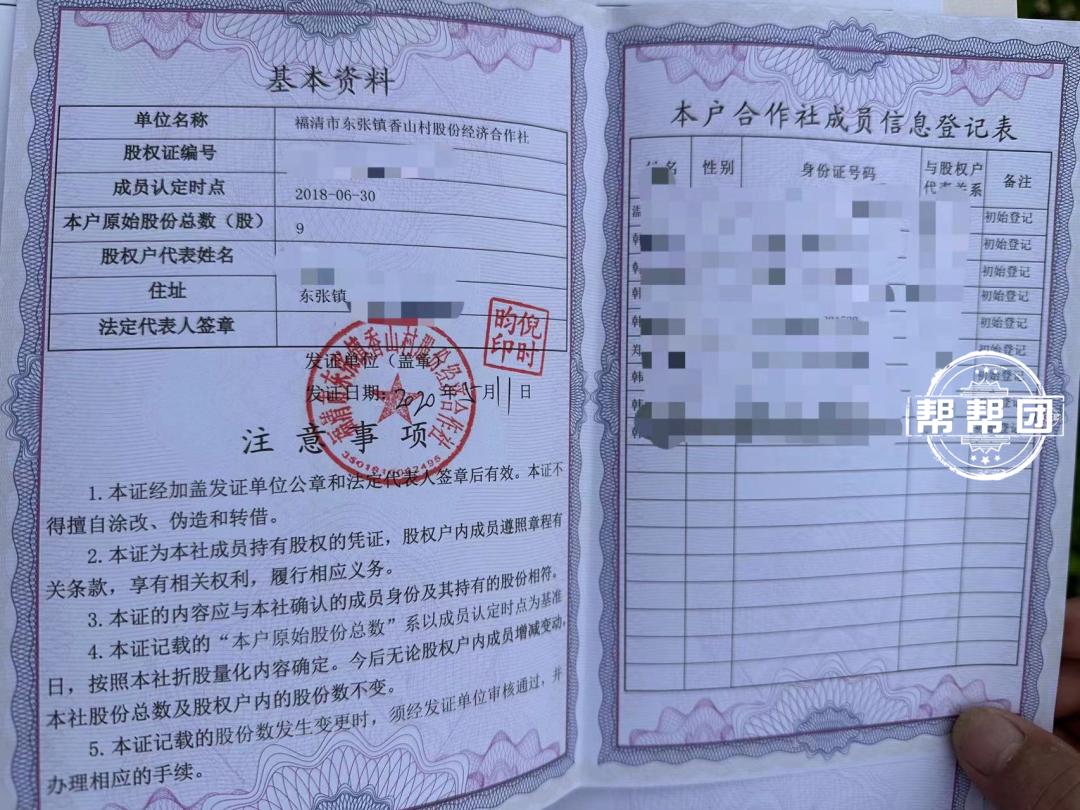 基本资料
单位名称 福清市东张镇香山村股份经济合作社
股权证编号
成员认定时点 2018-06-30
本户原始股份总数（股） 9
股权户代表姓名
住址 东张镇
法定代表人签章
倪时昀印
发证单位（盖章）
发证日期: 2020 年 月 11 日
注意事项
1. 本证经加盖发证单位公章和法定代表人签章后有效。本证不
得擅自涂改、伪造和转借。
2. 本证为本社成员持有股权的凭证，股权户内成员遵照章程有
关条款，享有相关权利，履行相应义务。
3. 本证的内容应与本社确认的成员身份及其持有的股份相符。
4. 本证记载的“本户原始股份总数”系以成员认定时点为基准
日，按照本社折股量化内容确定。今后无论股权户内成员增减变动，
本社股份总数及股权户内的股份数不变。
5. 本证记载的股份数发生变更时，须经发证单位审核通过，并
办理相应的手续。
本户合作社成员信息登记表
姓名 性别 身份证号码 与股权户代表关系 备注
温 初始登记
韩 初始登记
韩 初始登记
韩 初始登记
韩 初始登记
郑 初始登记
韩 初始登记
韩
韩
帮帮团